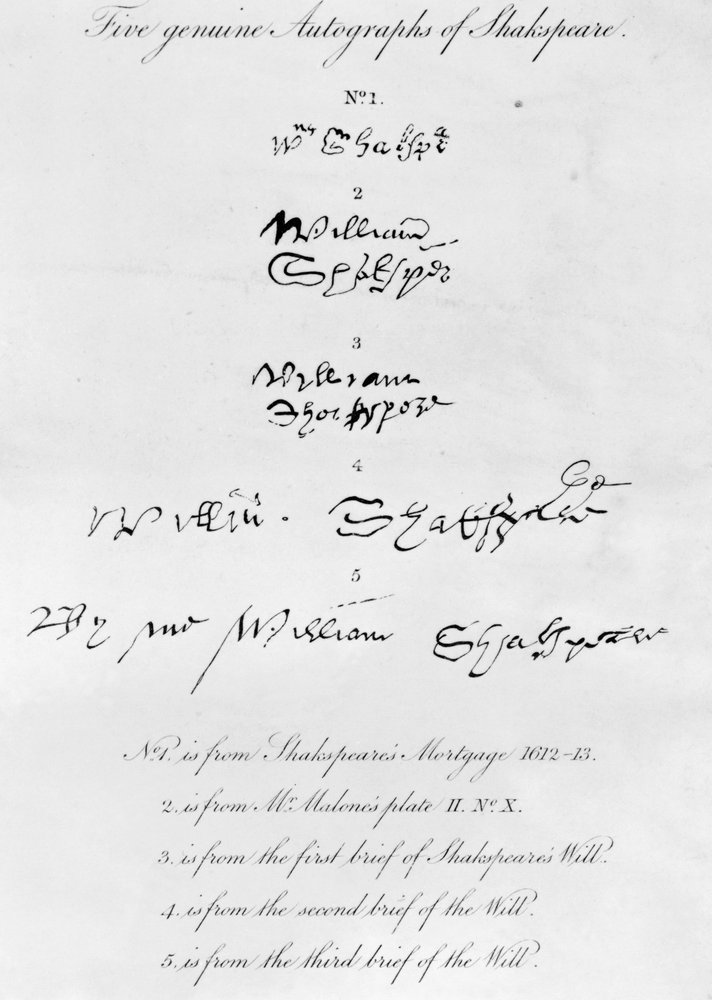 Five genuine Autographs of Shakspeare.
No. 1.
Wm Shakspe
2
William
Shaksper
3
William
Shakspere
4
Willm Shakspere
5
By me William Shakspeare
No. 1. is from Shakspeare's Mortgage 1612-13.
2. is from Mr. Malone's plate II. No. X.
3. is from the first brief of Shakspeare's Will.
4. is from the second brief of the Will.
5. is from the third brief of the Will.